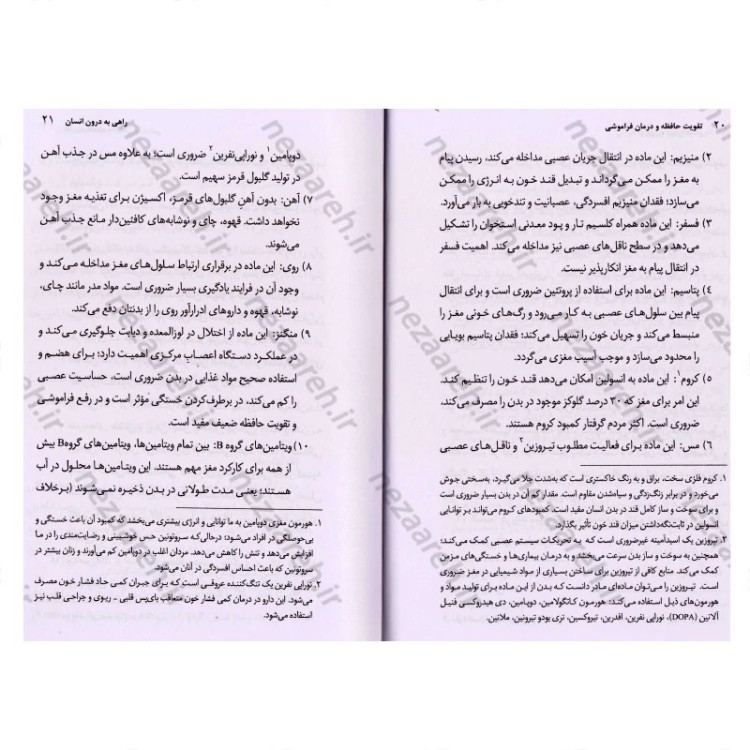 ۲۰ تقویت حافظه و درمان فراموشی
۲) منیزیم: این ماده در انتقال جریان عصبی مداخله می‌کند، رسیدن پیام
به مغز را ممکن می‌گرداند و تبدیل قند خون به انرژی را ممکن
می‌سازد؛ فقدان منیزیم افسردگی، عصبانیت و تندخویی به بار می‌آورد.
۳) فسفر: این ماده همراه کلسیم تار و پود معدنی استخوان را تشکیل
می‌دهد و در سطح ناقل‌های عصبی نیز مداخله می‌کند. اهمیت فسفر
در انتقال پیام به مغز انکارپذیر نیست.
۴) پتاسیم: این ماده برای استفاده از پروتئین ضروری است و برای انتقال
پیام بین سلول‌های عصبی به کار می‌رود و رگ‌های خونی مغز را
منبسط می‌کند و جریان خون را تسهیل می‌کند؛ فقدان پتاسیم بویایی
را محدود می‌سازد و موجب آسیب مغزی می‌گردد.
۵) کروم۱: این ماده به انسولین امکان می‌دهد قند خون را تنظیم کند.
این امر برای مغز که ۳۰ درصد گلوکز موجود در بدن را مصرف می‌کند،
ضروری است. اکثر مردم گرفتار کمبود کروم هستند.
۶) مس: این ماده برای فعالیت مطلوب تیروزین۲ و ناقل‌های عصبی
۱. کروم فلزی سخت، براق و به رنگ خاکستری است که به‌شدت جلا می‌گیرد، به‌سختی جوش
می‌خورد و در برابر زنگ‌زدگی و سیاه‌شدن مقاوم است. مقدار کم آن در بدن بسیار ضروری است
و برای سوخت و ساز کامل قند در بدن مفید است. کمبودهای کروم می‌تواند بر توانایی
انسولین در ثابت‌نگه‌داشتن میزان قند خون تأثیر بگذارد.
۲. تیروزین یک اسیدآمینه غیرضروری است که به تحریکات سیستم عصبی کمک می‌کند.
همچنین به سوخت و ساز بدن سرعت می‌بخشد و به درمان بیماری‌ها و خستگی‌های مزمن
کمک می‌کند. منابع کافی از تیروزین برای ساختن بسیاری از مواد شیمیایی در مغز ضروری
است. تیروزین را می‌توان ماده‌ای مادر دانست که بدن از این ماده برای تولید مواد و
هورمون‌های ذیل استفاده می‌کند: هورمون کاتگولامین، دوپامین، دی هیدروکسی فنیل
آلانین (DOPA)، نوراپی نفرین، افدرین، تیروکسین، تری یودو تیرونین، ملانین.
راهی به درون انسان ۲۱
دوپامین۱ و نوراپی‌نفرین۲ ضروری است؛ به علاوه مس در جذب آهن
در تولید گلبول قرمز سهیم است.
۷) آهن: بدون آهنِ گلبول‌های قرمز، اکسیژن برای تغذیه مغز وجود
نخواهد داشت. قهوه، چای و نوشابه‌های کافئین‌دار مانع جذب آهن
می‌شوند.
۸) روی: این ماده در برقراری ارتباط سلول‌های مغز مداخله می‌کند و
وجود آن در فرایند یادگیری بسیار ضروری است، مواد مدر مانند چای،
نوشابه، قهوه و داروهای ادرارآور روی را از بدنتان دفع می‌کند.
۹) منگنز: این ماده از اختلال در لوزالمعده و دیابت جلوگیری می‌کند و
در عملکرد دستگاه اعصاب مرکزی اهمیت دارد؛ برای هضم و
استفاده صحیح مواد غذایی در بدن ضروری است، حساسیت عصبی
را کم می‌کند، در برطرف‌کردن خستگی مؤثر است و در رفع فراموشی
و تقویت حافظه ضعیف مفید است.
۱۰) ویتامین‌های گروه B: بین تمام ویتامین‌ها، ویتامین‌های گروه B بیش
از همه برای کارکرد مغز مهم هستند. این ویتامین‌ها محلول در آب
هستند؛ یعنی مدت طولانی در بدن ذخیره نمی‌شوند (برخلاف
۱. هورمون مغزی دوپامین به ما توانایی و انرژی بیشتری می‌بخشد که کمبود آن باعث خستگی و
بی‌حوصلگی در افراد می‌شود؛ درحالی‌که سروتونین حس خوشبینی و رضایت‌مندی را در ما
افزایش می‌دهد و تنش را کاهش می‌دهد. مردان اغلب در دوپامین کم می‌آورند و زنان بیشتر در
سروتونین که باعث احساس افسردگی در آنان می‌شود.
۲. نوراپی نفرین یک تنگ‌کننده عروقی است که برای جبران کمی حاد فشار خون مصرف
می‌شود. این دارو در درمان کمی فشار خون متعاقب بای‌پس قلبی - ریوی و جراحی قلب نیز
استفاده می‌شود.
nezaareh.ir